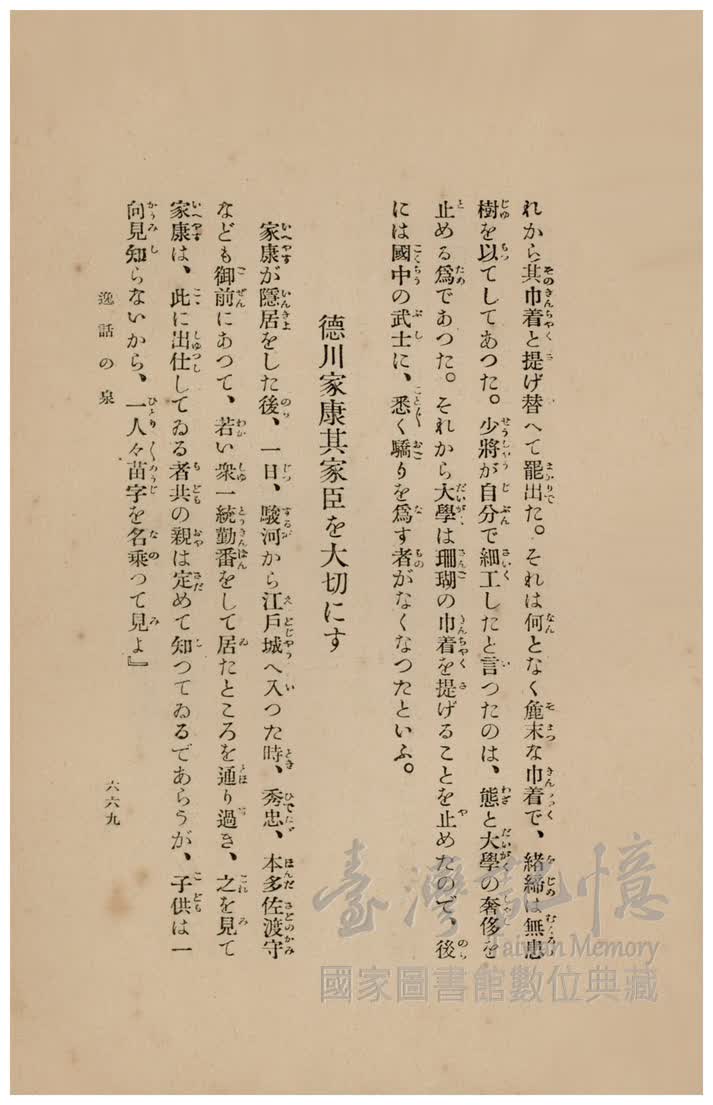 れから其巾着と提げ替へて罷出た。それは何となく麁末な巾着で、緒締は無患
樹を以てしてあつた。少將が自分で細工したと言つたのは、態と大學の奢侈を
止める爲であつた。それから大學は珊瑚の巾着を提げることを止めたので、後
には國中の武士に、悉く驕りを爲す者がなくなつたといふ。
德川家康其家臣を大切にす
家康が隱居をした後、一日、駿河から江戶城へ入つた時、秀忠、本多佐渡守
なども御前にあつて、若い衆一統勤番をして居たところを通り過き、之を見て
家康は、此に出仕してゐる者共の親は定めて知つてゐるであらうが、子供は一
向見知らないから、一人々々苗字を名乘つて見よ』
逸話の泉
六六九
臺灣記憶
Taiwan Memory
國家圖書館數位典藏